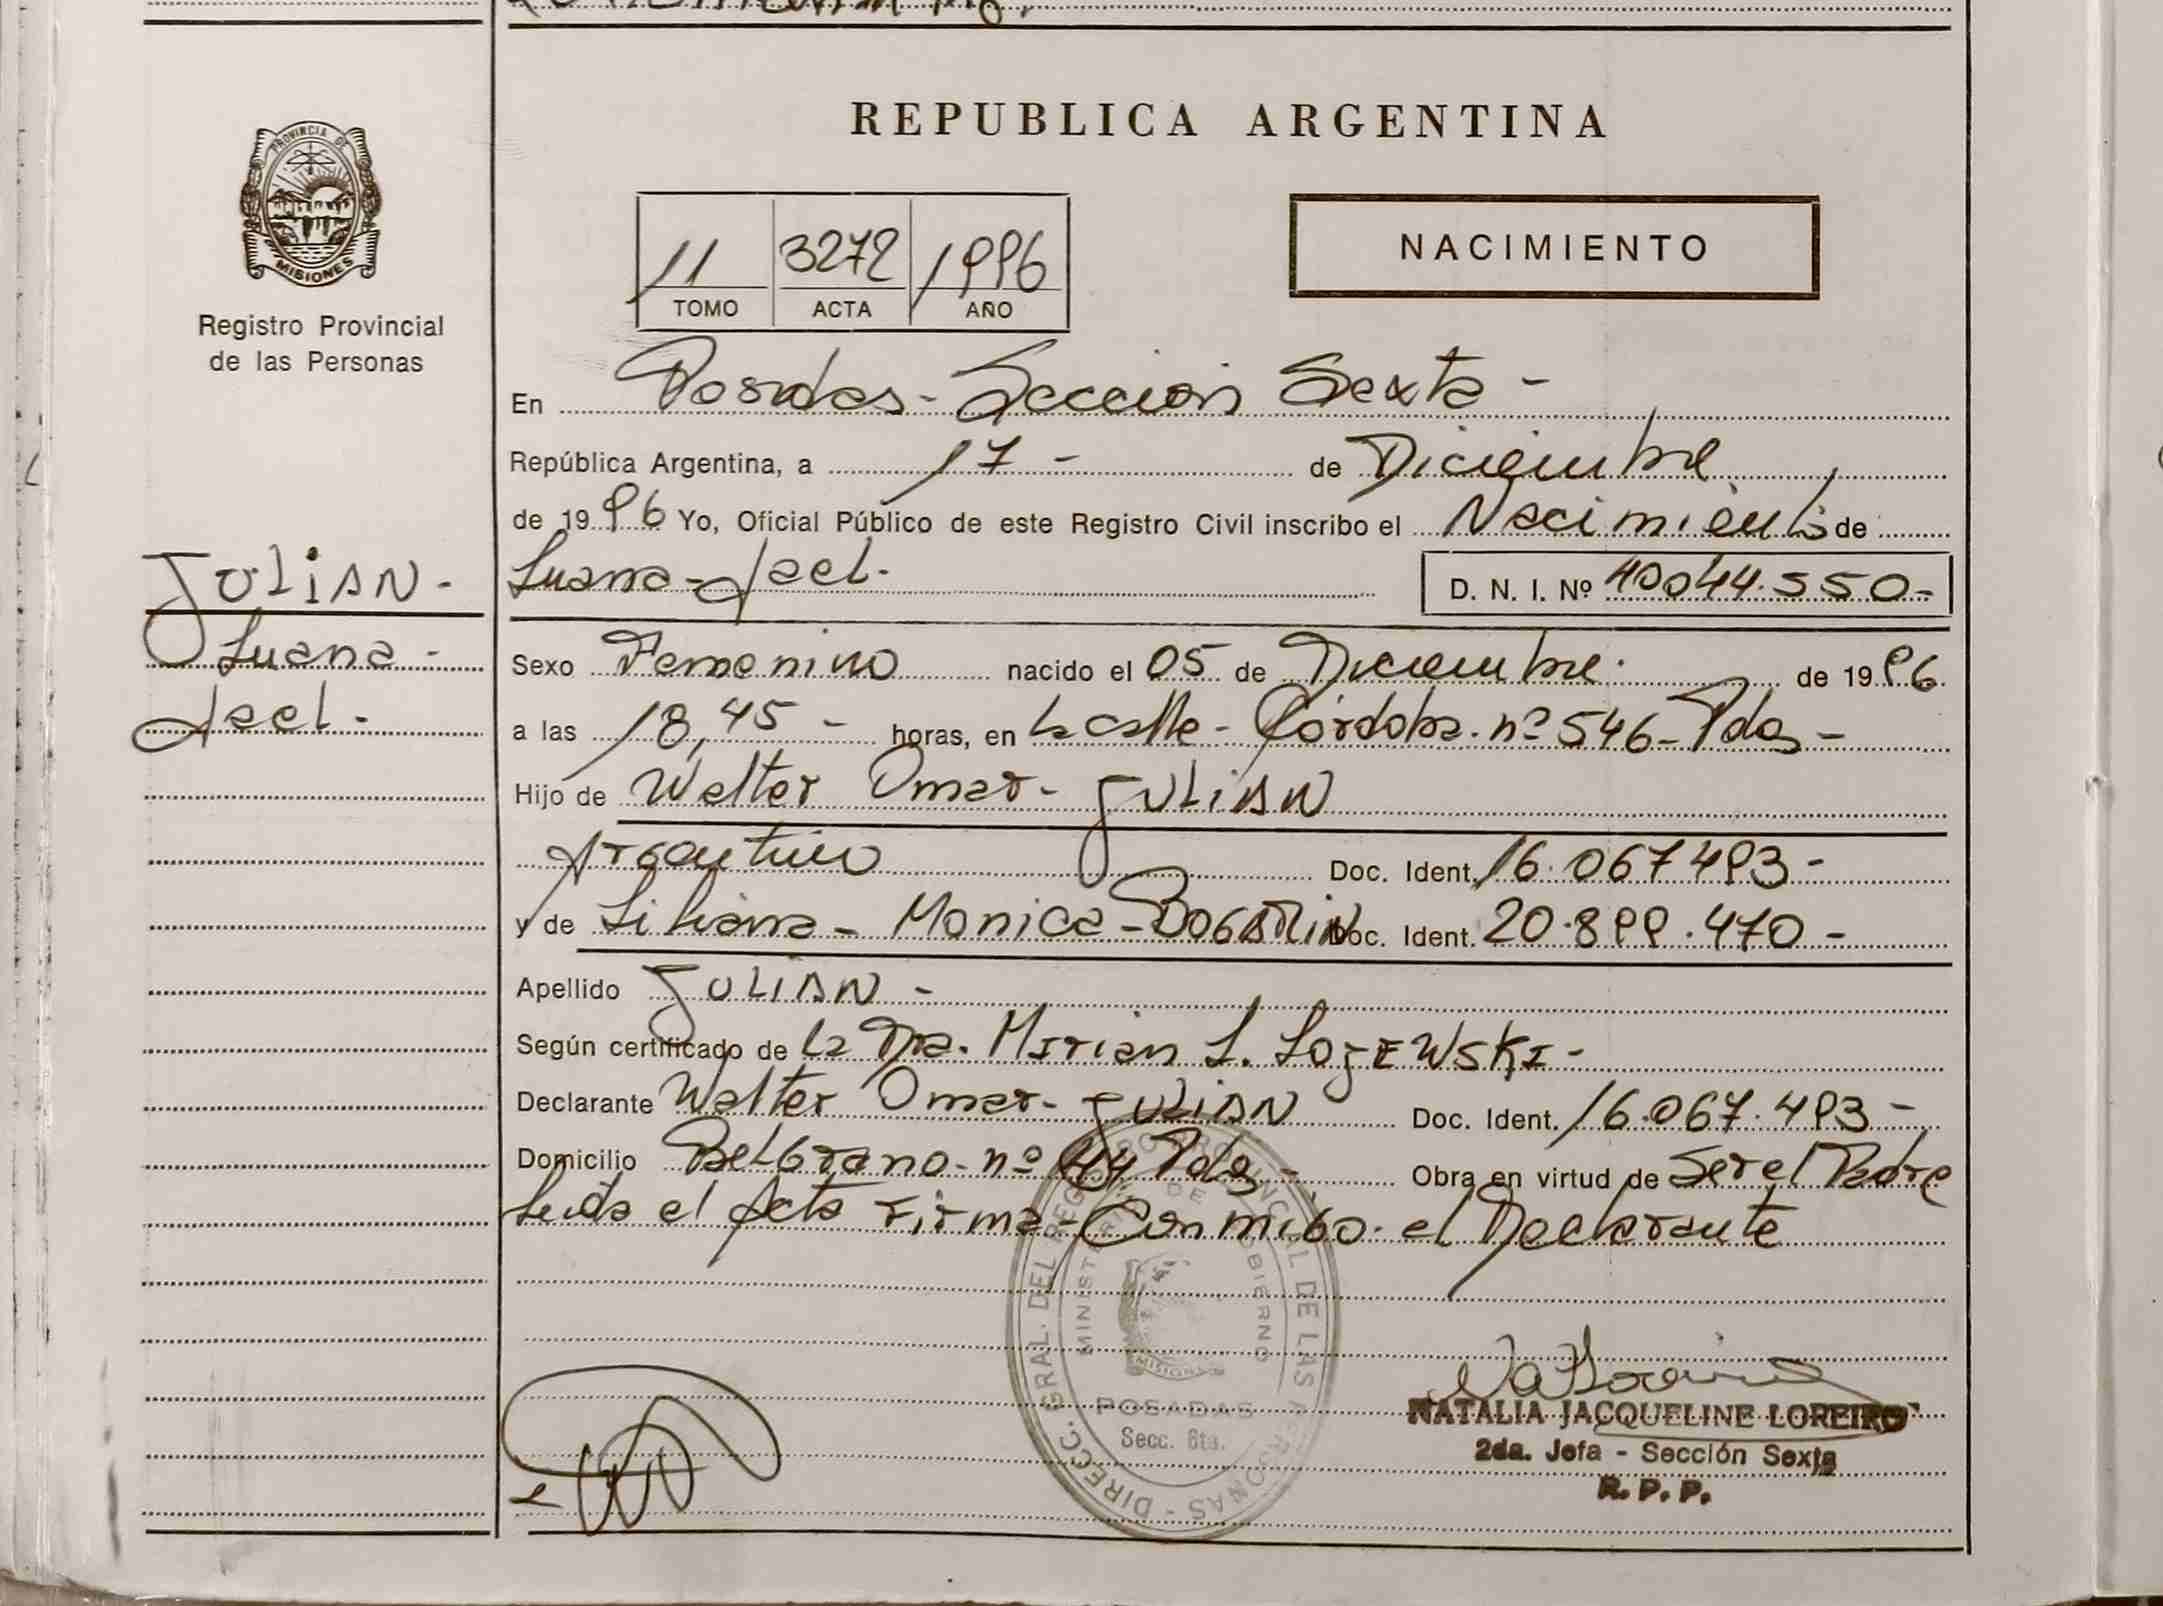 PROVINCIA DE
MISIONES
Registro Provincial
de las Personas
JULIAN-
Luana-
Jael-
REPUBLICA ARGENTINA
11 3272 1996
TOMO ACTA AÑO
NACIMIENTO
En Posadas- Sección Sexta-
República Argentina, a 17- de Diciembre
de 1996 Yo, Oficial Público de este Registro Civil inscribo el Nacimiento de
Luana-Jael- D. N. I. Nº 40044.550-
Sexo Femenino nacido el 05 de Diciembre de 1996
a las 18,45- horas, en la calle- Córdoba. nº 546- Pdas-
Hijo de Walter Omar- JULIAN
Argentino Doc. Ident. 16.067493-
y de Liliana- Monica- BOGARIN Doc. Ident. 20.899.470-
Apellido JULIAN-
Según certificado de la Dra. Mirian L. LOJEWSKI-
Declarante Walter Omar- JULIAN Doc. Ident. 16.067.493-
Domicilio Belgrano- nº Pdas- Obra en virtud de Ser el Padre
Leída el Acta Firma- Conmigo. el Declarante
DIRECC. GRAL. DEL REGISTRO PROVINCIAL DE LAS PERSONAS -
MINISTERIO DE GOBIERNO
MISIONES
POSADAS
Secc. 6ta.
NATALIA JACQUELINE LOREIRO
2da. Jefa - Sección Sexta
R. P. P.